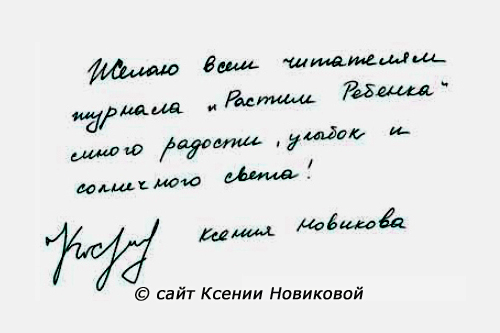 Желаю всем читателям
журнала „Растим Ребенка"
много радости, улыбок и
солнечного света!
Ксения Новикова
© сайт Ксении Новиковой